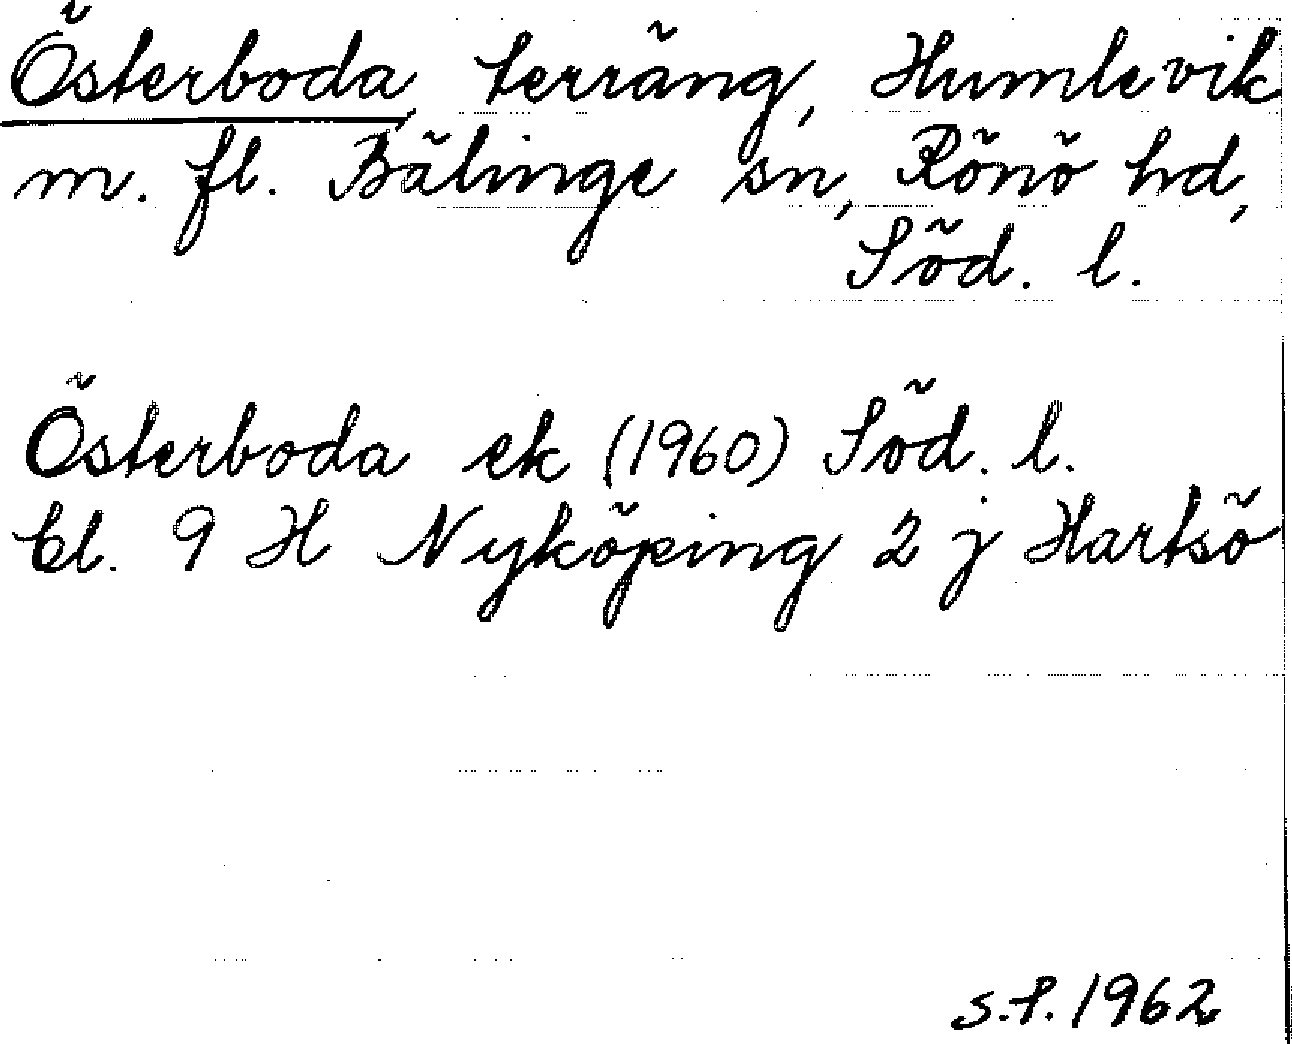 Österboda, terräng, Humlevik
m. fl. Bälinge sn, Rönö hd,
Söd. l.
Österboda ek (1960) Söd. l.
bl. 9 H Nyköping 2 j Hartsö
S.P. 1962